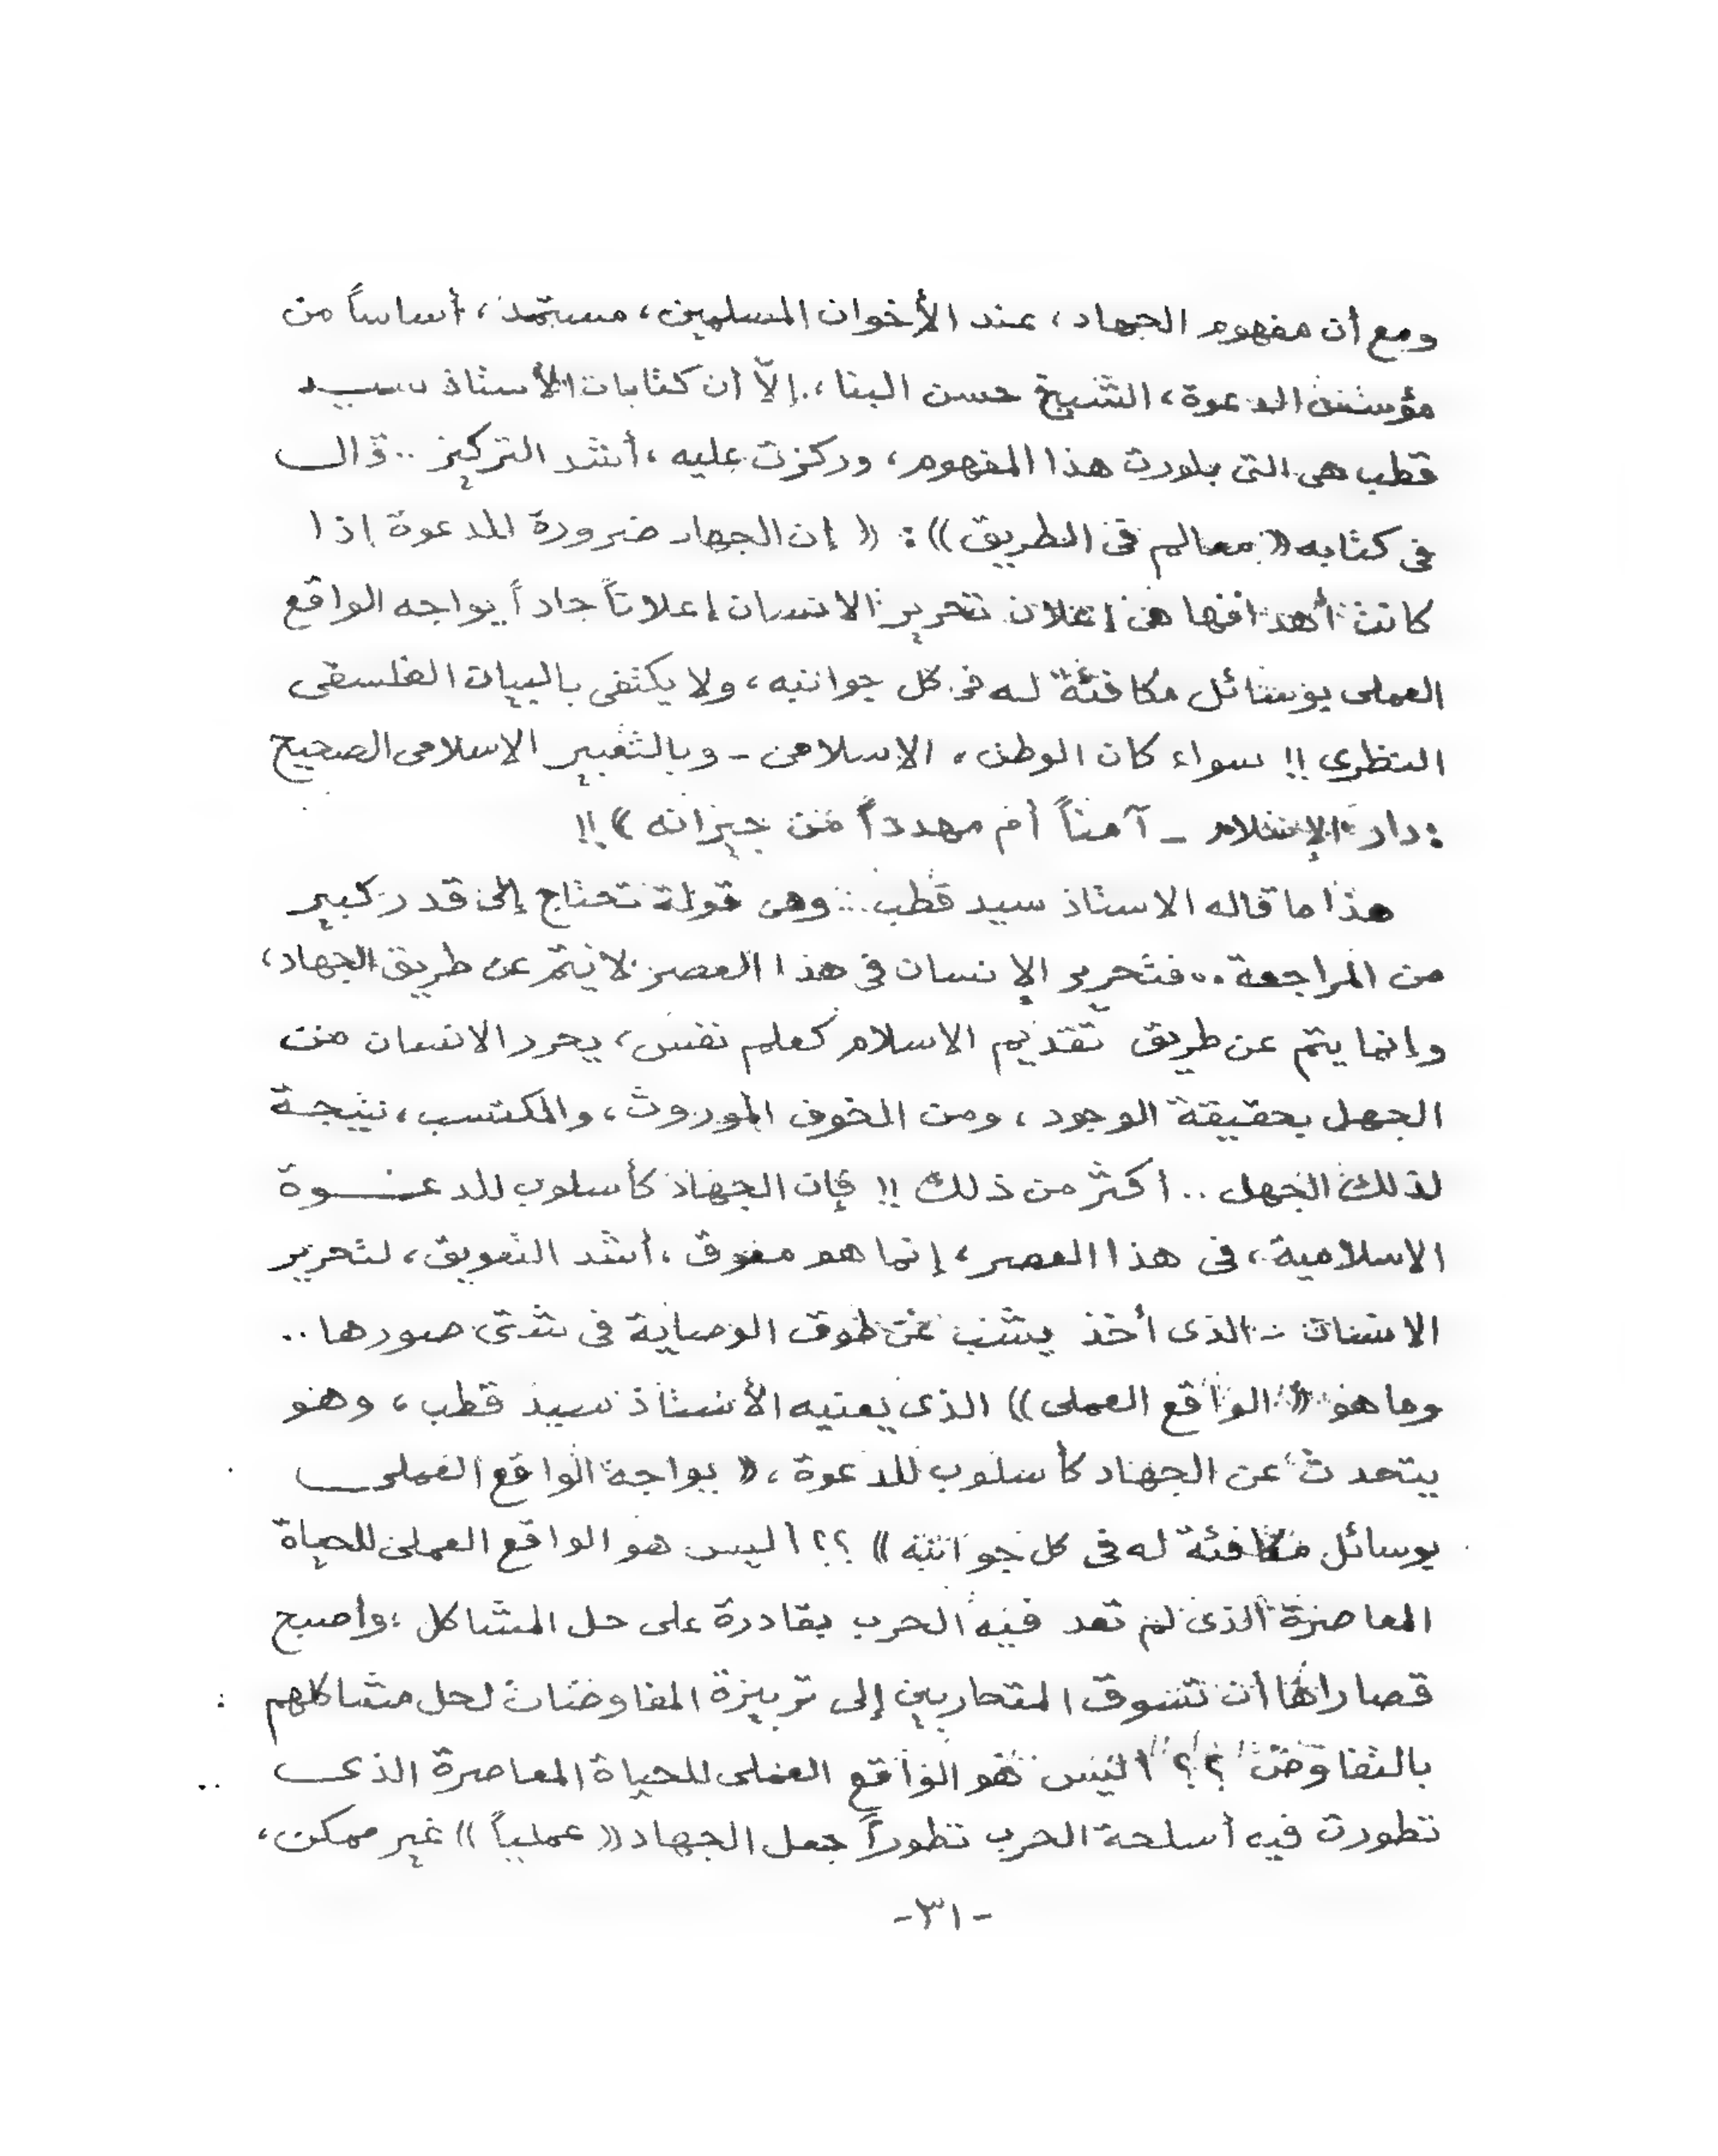 ومع أن مفهوم الجهاد، عند الأخوان المسلمين، مستمد، أساساً من
مؤسس الدعوة، الشيخ حسن البنا، إلاّ أن كتابات الأستاذ سيد
قطب هى التى بلورت هذا المفهوم، وركزت عليه، أشد التركيز .. قال
فى كتابه «معالم فى الطريق»: « إن الجهاد ضرورة للدعوة إذا
كانت أهدافها هى إعلان تحرير الانسان إعلاناً جاداً يواجه الواقع
العملى بوسائل مكافئة له فى كل جوانبه، ولا يكتفى بالبيان الفلسفى
النظرى !! سواء كان الوطن، الاسلامى - وبالتعبير الاسلامى الصحيح
: دار الإسلام - آمناً أم مهدداً من جيرانه » !!
هذا ما قاله الاستاذ سيد قطب .. وهى قولة تحتاج إلى قدر كبير
من المراجعة .. فتحرير الإنسان فى هذا العصر لا يتم عن طريق الجهاد،
وإنما يتم عن طريق تقديم الاسلام كعلم نفس، يحرر الانسان من
الجهل بحقيقة الوجود، ومن الخوف الموروث، والمكتسب، نتيجة
لذلك الجهل .. أكثر من ذلك !! فإن الجهاد كأسلوب للدعوة
الاسلامية، فى هذا العصر، إنما هو معوق، أشد التعويق، لتحرير
الانسان - الذى أخذ يشب عن طوق الوصاية فى شتى صورها ..
وما هو «الواقع العملى» الذى يعنيه الأستاذ سيد قطب، وهو
يتحدث عن الجهاد كأسلوب للدعوة، « يواجه الواقع العملى
بوسائل مكافئة له فى كل جوانبه » ؟؟ أليس هو الواقع العملى للحياة
المعاصرة الذى لم تعد فيه الحرب بقادرة على حل المشاكل، وأصبح
قصاراها أن تسوق المتحاربين إلى تربيزة المفاوضات لحل مشاكلهم
بالتفاوض ؟؟ أليس هو الواقع العملى للحياة المعاصرة الذى
تطورت فيه أسلحة الحرب تطوراً جعل الجهاد « عملياً » غير ممكن،
-٣١-